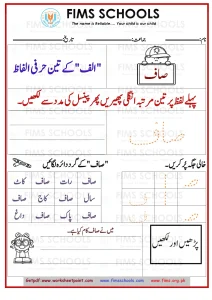 FIMS SCHOOLS
The name is Reliable.... Your child is our child
نام: جماعت: تاریخ:
صاف
"الف" کے تین حرفی الفاظ
پہلے لفظ پر تین مرتبہ انگلی پھیریں پھر پینسل کی مدد سے لکھیں۔
صاف
خالی جگہ پُر کریں۔
"صاف" کے گرد دائرہ لگائیں
صاف رات صاف کاٹ
سال صاف کاج صاف
صاف پاک صاف داغ
پڑھیں اور لکھیں
میں نے صاف کام کیا ہے۔
www.fimsschools.com
www.fims.org.pk